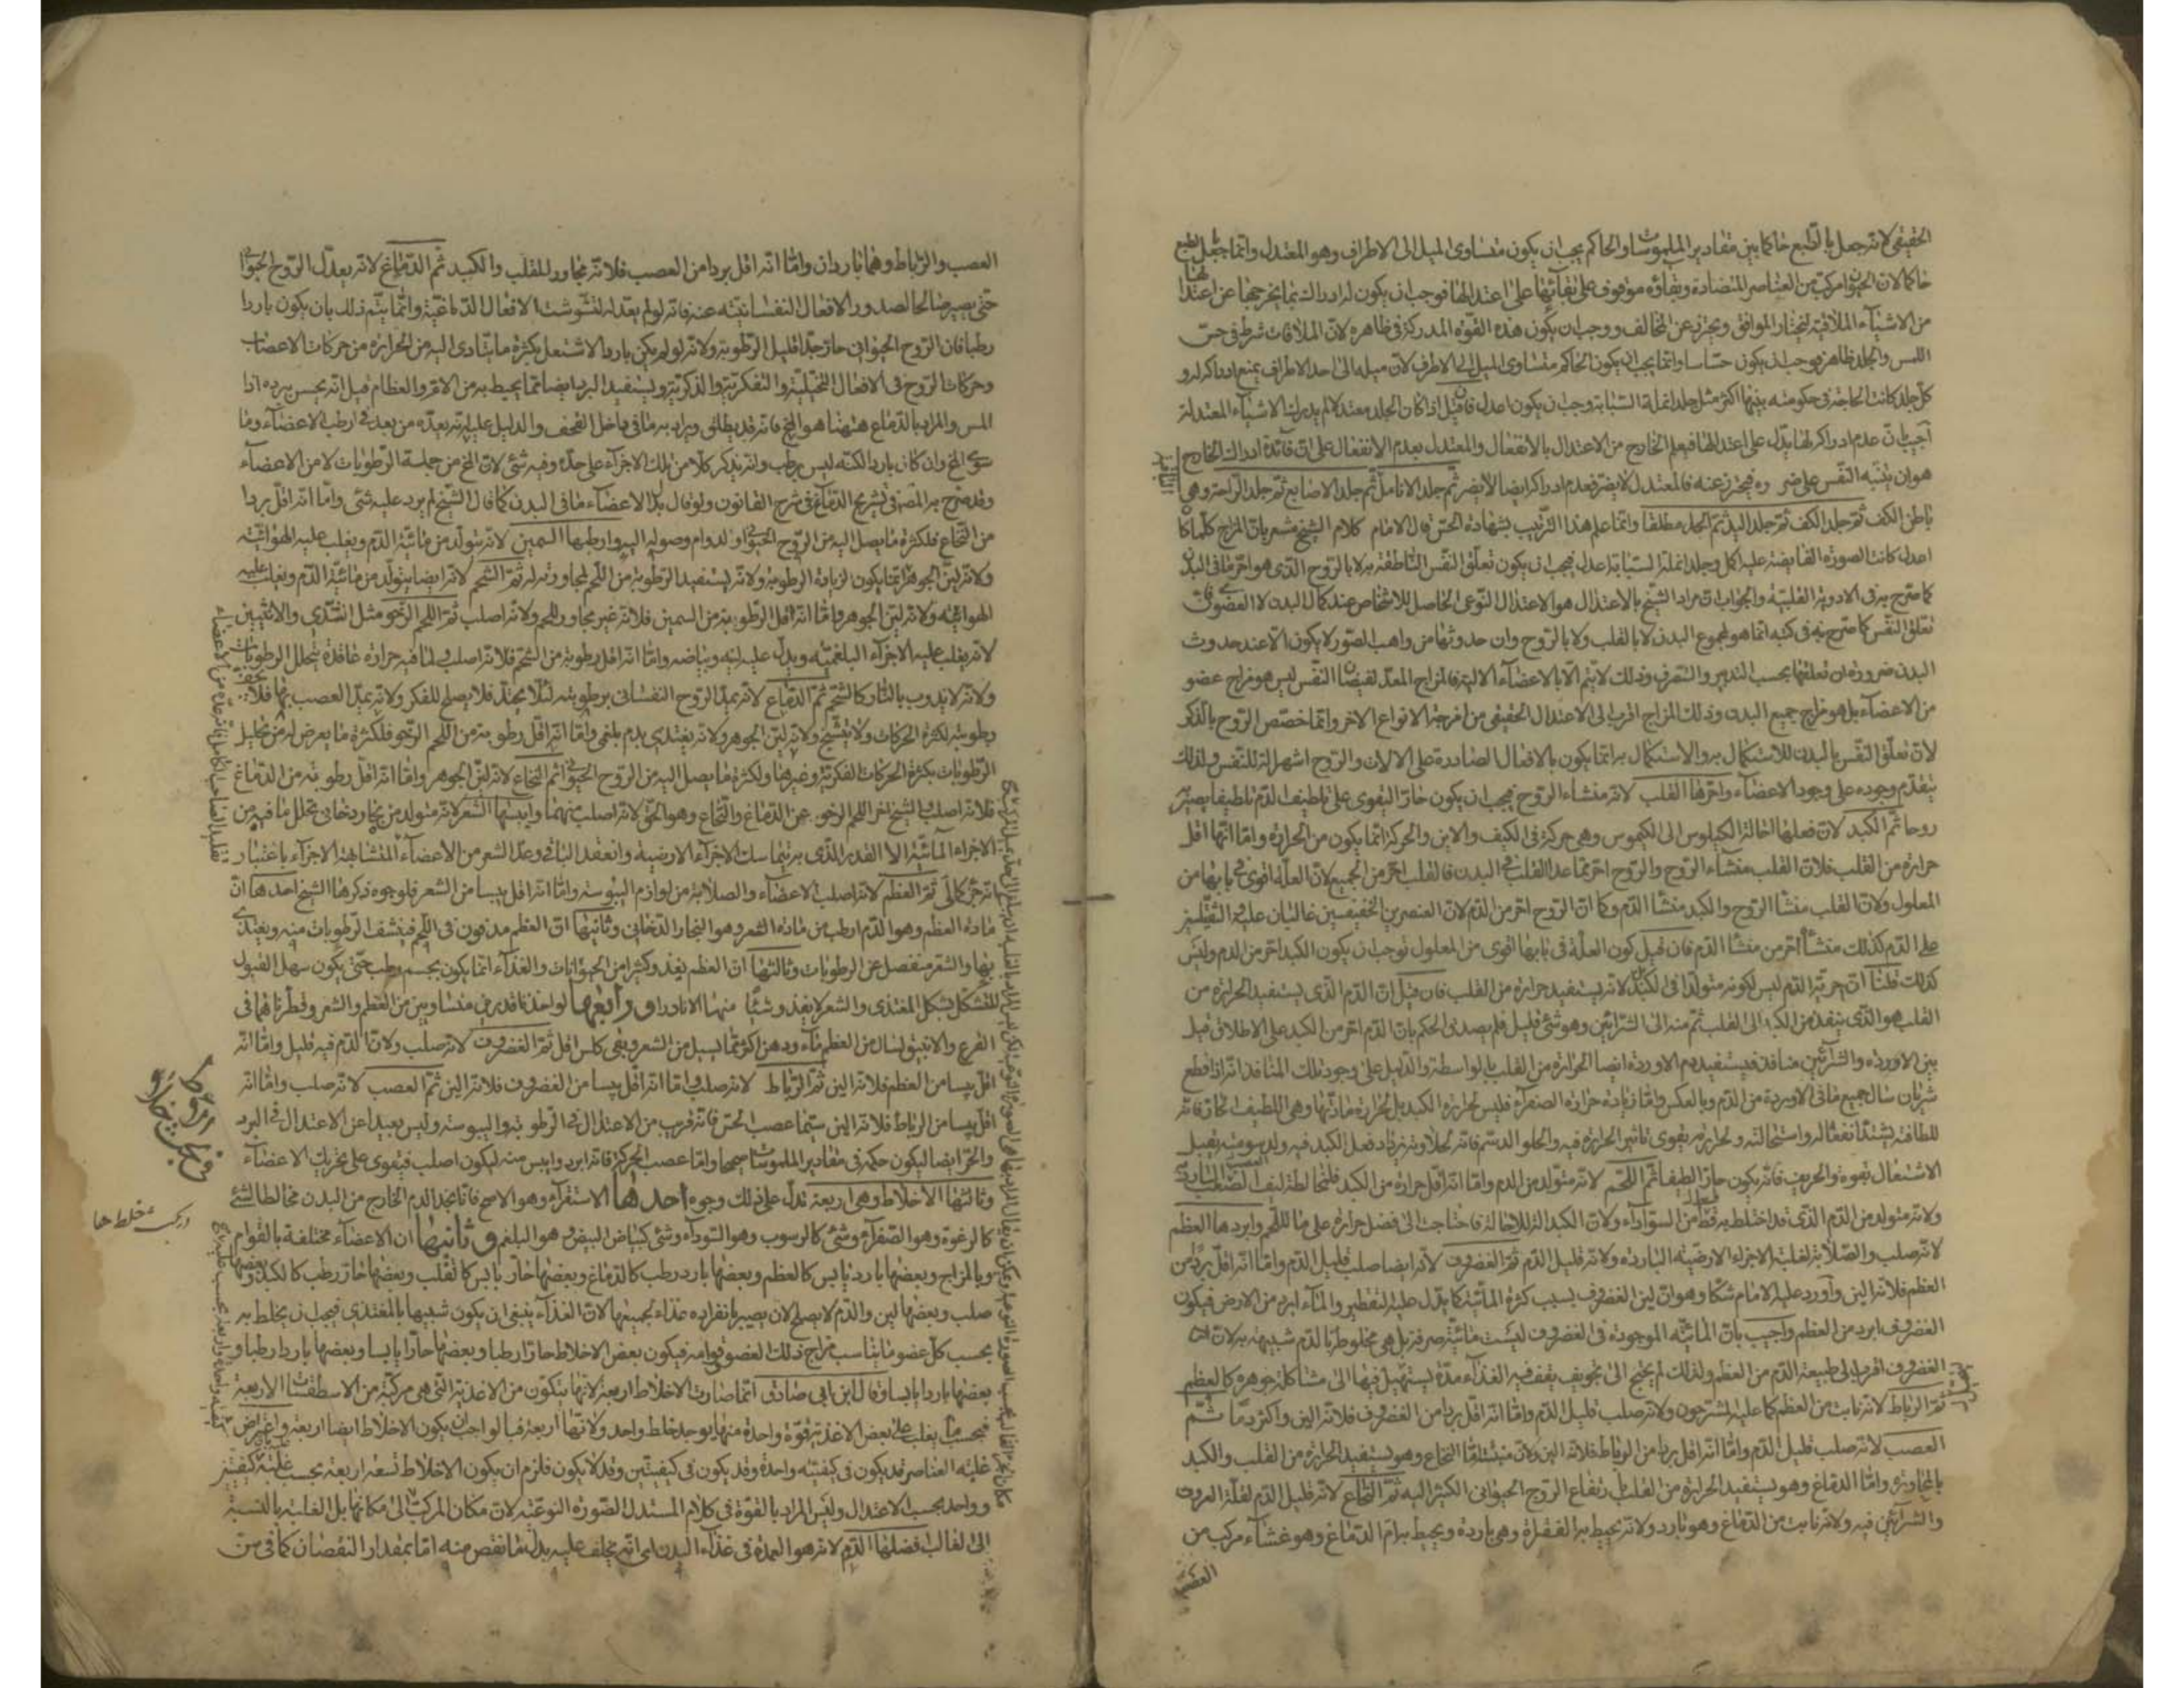 الحقيقى لانه جعل بالطبع حاكما بين مقادير الملموسات والحاكم يجب ان يكون متساوى الميل الى الاطراف وهو المعتدل وانما جعل بالطبع
حاكما لان الحيوان مركب من العناصر المتضادة وبقاؤه موقوف على بقائها على اعتدالها فوجب ان يكون له ادراك بما يخرجها عن اعتدالها
من الاشياء الملاقية ليختار الموافق ويحترز عن المخالف ووجب ان يكون هذه القوة المدركة فى ظاهره لان الملاقات شرط فى حس
اللمس والجلد ظاهر فوجب ان يكون حساسا وانما يجب ان يكون الحاكم متساوى الميل الى الاطراف لان ميله الى احد الاطراف يمنع ادراكه له و
كل جلد كانت الحاجة فى حكومته بينها اكثر مثل جلد انملة السبابة وجب ان يكون اعدل فان قيل اذا كان الجلد معتدلا لم يدرك الاشياء المعتدلة
اجيب بان عدم ادراكه لها يدل على اعتدالها فيعلم الخارج من الاعتدال بالانفعال والمعتدل بعدم الانفعال على ان فائدة ادراك الخارج
هو ان يتنبه النفس على ضرره فيحترز عنه فالمعتدل لا يضر فعدم ادراكه ايضا لا يضر ثم جلد الانامل ثم جلد الاصابع ثم جلد الراحة وهى
باطن الكف ثم جلد الكف ثم جلد اليد ثم الجلد مطلقا وانما علم هذا الترتيب بشهادة الحس قال الامام كلام الشيخ مشعر بان المزاج كلما كان
اعدل كانت الصورة الفايضة عليه اكمل وجلد انملة السبابة اعدل فيجب ان يكون تعلق النفس الناطقة به لا بالروح الذى هو احر ما فى البدن
كما صرح به فى الادوية القلبية والجواب ان مراد الشيخ بالاعتدال هو الاعتدال النوعى الحاصل للاشخاص عند كمال البدن لا العضوى فان
تعلق النفس كما صرح به فى كتبه انما هو لمجموع البدن لا بالقلب ولا بالروح وان حدوثها من واهب الصور لا يكون الا عند حدوث
البدن ضرورة ان تعلقها بحسب التدبير والتصرف وذلك لا يتم الا بالاعضاء الالية فالمزاج المعد لفيضان النفس ليس هو مزاج عضو
من الاعضاء بل هو مزاج جميع البدن وذلك المزاج اقرب الى الاعتدال الحقيقى من امزجة الانواع الاخر وانما خصص الروح بالذكر
لان تعلق النفس بالبدن للاستكمال به والاستكمال به انما يكون بالافعال الصادرة على الالات والروح اشهر الة للنفس ولذلك
يتقدم وجوده على وجود الاعضاء واحرها القلب لانه منشاء الروح فيجب ان يكون حارا ليقوى على تلطيف الدم تلطيفا يصير
روحا ثم الكبد لان فعلها احالة الكيلوس الى الكيموس وهى حركة فى الكيف والاين والحركة انما يكون من الحرارة واما انها اقل
حرارة من القلب فلان القلب منشاء الروح والروح احر مما عدا القلب فى البدن فالقلب احر من الجميع لان العلة اقوى فى بابها من
المعلول ولان القلب منشا الروح والكبد منشا الدم وكما ان الروح احر من الدم لان العنصرين الخفيفين غالبان عليه الثقيلين
على الدم كذلك منشأ احر من منشا الدم فان قيل كون العلة فى بابها اقوى من المعلول توجب ان يكون الكبد احر من الدم وليس
كذلك قلنا ان حرية الدم ليس لكونه متولدا فى الكبد بل لانه يستفيد حرارة من القلب فان قيل ان الدم الذى يستفيد الحرارة من
القلب هو الذى ينفذ من الكبد الى القلب ثم منه الى الشرائين وهو شئ قليل فلم يصدق الحكم بان الدم احر من الكبد على الاطلاق قيل
بين الاوردة والشرائين منافذ فيستفيد دم الاوردة ايضا الحرارة من القلب بالواسطة والدليل على وجود تلك المنافذ انه اذا قطع
شريان سال جميع ما فى الاوردة من الدم وبالعكس واما زيادة حرارة الصفراء فليس لحرارة الكبد بل لحرارة مادتها وهى اللطيف الحار فانه
للطافته يشتد انفعاله واستحالته ولحرارته يقوى تاثير الحرارة فيه والحلو الدسم فانه لحلاوته يزداد فعل الكبد فيه ولدسومته يقبل
الاشتعال بقوة والحريف فانه يكون حارا لطيفا ثم اللحم لانه متولد من الدم واما انه اقل حرارة من الكبد فلمخالطة ليف العصب البارد
ولانه متولد من الدم الذى قد اختلط به قسط من السوداء ولان الكبد الة للاحالة فاحتاجت الى فضل حرارة على ما للحم وابردها العظم
لانه صلب والصلابة لغلبة الاجزاء الارضية الباردة ولانه قليل الدم ثم الغضروف لانه ايضا صلب قليل الدم واما انه اقل بردا من
العظم فلانه الين واورد عليه الامام شكا وهو ان لين الغضروف بسبب كثرة المائية كما يدل عليه التقطير والماء ابرد من الارض فيكون
الغضروف ابرد من العظم واجيب بان المائية الموجودة فى الغضروف ليست مائية صرفة بل هى مخلوطة بالدم شبيهة به لان
الغضروف اقرب الى طبيعة الدم من العظم ولذلك لم يحتج الى تجويف يقف فيه الغذاء مدة يستحيل فيها الى مشاكلة جوهره كالعظم
ثم الرباط لانه نابت من العظم كما عليه المشرحون ولانه صلب قليل الدم واما انه اقل بردا من الغضروف فلانه الين واكثر دما ثم
العصب لانه صلب قليل الدم واما انه اقل بردا من الرباط فلانه الين ولان منبته اما النخاع وهو يستفيد الحرارة من القلب والكبد
بالمجاورة واما الدماغ وهو يستفيد الحرارة من القلب بارتفاع الروح الحيوانى الكثير اليه ثم النخاع لانه قليل الدم لقلة العروق
والشرائين فيه ولانه نابت من الدماغ وهو بارد ولانه يحيط به الفقرة وهى باردة ويحيط به ام الدماغ وهو غشاء مركب من
العصب
العصب والرباط وهما باردان واما انه اقل بردا من العصب فلانه مجاور للقلب والكبد ثم الدماغ لانه يعدل الروح الحيوانى
حتى يصير صالحا لصدور الافعال النفسانية عنه فانه لو لم يعدله لتشوشت الافعال الدماغية وانما يتم ذلك بان يكون باردا
رطبا فان الروح الحيوانى حار جدا قليل الرطوبة ولانه لو لم يكن باردا لاشتعل بكثرة ما يتادى اليه من الحرارة من حركات الاعصاب
وحركات الروح فى الافعال التخيلية والتفكرية والذكرية ويستفيد البرد ايضا مما يحيط به من الام والعظام قيل انه يحس ببرده اذا
لمس والمراد بالدماغ ههنا هو المخ فانه قد يطلق ويراد به ما فى داخل القحف والدليل عليه انه يعده من بعد فى ارطب الاعضاء وما
سوى المخ وان كان باردا لكنه ليس برطب وانه يذكر كلا من تلك الاجزاء على حدة وفيه شئ لان المخ من جملة الرطوبات لا من الاعضاء
وقد صرح به المص فى تشريح الدماغ فى شرح القانون ولو قال بدل الاعضاء ما فى البدن كما قال الشيخ لم يرد عليه شئ واما انه اقل بردا
من النخاع فلكثرة ما يصل اليه من الروح الحيوانى او لدوام وصوله اليه وارطبها السمين لانه يتولد من مائية الدم ويغلب عليه الهوائية
ولان لين الجوهر انما يكون لزيادة الرطوبة ولانه يستفيد الرطوبة من اللحم لمجاورته له ثم الشحم لانه ايضا يتولد من مائية الدم ويغلب عليه
الهوائية ولانه لين الجوهر واما انه اقل رطوبة من السمين فلانه غير مجاور للحم ولانه اصلب ثم اللحم الرخو مثل الثدى والانثيين
لانه يغلب عليه الاجزاء البلغمية ويدل عليه لينه وبياضه واما انه اقل رطوبة من الشحم فلانه اصلب ولما فيه حرارة عاقدة بتحلل الرطوبات
ولانه لا يذوب بالنار كالشحم ثم الدماغ لانه يمد الروح النفسانى برطوبته لئلا يحتد فلا يصلح للفكر ولانه يمد العصب بها فلا يجف
رطوبته لكثرة الحركات ولا يتشنج ولانه لين الجوهر ولانه يغتذى بدم بلغمى واما انه اقل رطوبة من اللحم الرخو فلكثرة ما يعرض له من تحليل
الرطوبات بكثرة الحركات الفكرية وغيرها ولكثرة ما يصل اليه من الروح الحيوانى ثم النخاع لانه لين الجوهر واما انه اقل رطوبة من الدماغ
فلانه اصلب والشيخ اخر اللحم الرخو عن الدماغ والنخاع وهو الحق لانه اصلب منهما وايبسها الشعر لانه متولد من بخار دخانى تحلل ما فيه من
الاجزاء المائية الا القدر الذى به يتماسك الاجزاء الارضية وانعقد الباقى وعد الشعر من الاعضاء المتشابهة الاجزاء باعتبار
انه جزء كالى ثم العظم لانه اصلب الاعضاء والصلابة من لوازم اليبوسة واما انه اقل يبسا من الشعر فلوجوه ذكرها الشيخ احدها ان
مادة العظم وهو الدم ارطب من مادة الشعر وهو البخار الدخانى وثانيها ان العظم مدفون فى اللحم فينشف الرطوبات منه ويغتذى
بها والشعر منفصل عن الرطوبات وثالثها ان العظم يغذو كثيرا من الحيوانات والغذاء انما يكون بجسم رطب حتى يكون سهل القبول
للتشكل بشكل المغتذى والشعر لا يغذو شيئا منها الا نادرا ورابعها لو اخذنا قدرين متساويين من العظم والشعر وقطرناهما فى
القرع والانبيق لسال من العظم ماء ودهن اكثر مما يسيل من الشعر ويبقى كلس اقل ثم الغضروف لانه صلب ولان الدم فيه قليل واما انه
اقل يبسا من العظم فلانه الين ثم الرباط لانه صلب واما انه اقل يبسا من الغضروف فلانه الين ثم العصب لانه صلب واما انه
اقل يبسا من الرباط فلانه الين سيما عصب الحس فانه قريب من الاعتدال فى الرطوبة واليبوسة وليس بعيدا عن الاعتدال فى البرد
والحر ايضا ليكون حكمه فى مقادير الملموسات صحيحا واما عصب الحركة فانه ابرد وايبس منه ليكون اصلب فيقوى على تحريك الاعضاء
وثالثها الاخلاط وهى اربعة تدل على ذلك وجوه احدها الاستقراء وهو الاصح فانا نجد الدم الخارج من البدن مخالطا لشئ
كالرغوة وهو الصفراء وشئ كالرسوب وهو السوداء وشئ كبياض البيض وهو البلغم وثانيها ان الاعضاء مختلفة بالقوام
وبالمزاج وبعضها بارد يابس كالعظم وبعضها بارد رطب كالدماغ وبعضها حار يابس كالقلب وبعضها حار رطب كالكبد وبعضها
صلب وبعضها لين والدم لا يصلح لان يصير بانفراده غذاء لجميعها لان الغذاء ينبغى ان يكون شبيها بالمغتذى فيجب ان يخلط به
بحسب كل عضو ما يناسب مزاج ذلك العضو وقوامه فيكون بعض الاخلاط حارا رطبا وبعضها حارا يابسا وبعضها باردا رطبا و
بعضها باردا يابسا وقال ابن ابى صادق انما صارت الاخلاط اربعة لانها يتكون من الاغذية التى هى مركبة من الاسطقسات الاربعة
فبحسب ما يغلب على بعض الاغذية قوة واحدة منها يوجد خلط واحد ولانها اربعة فبالواجب ان يكون الاخلاط ايضا اربعة واعترض
غلبة العناصر قد يكون فى كيفية واحدة وقد يكون فى كيفيتين وقد لا يكون فلزم ان يكون الاخلاط تسعة اربعة بحسب غلبة كيفيتين
وواحد بحسب الاعتدال وليس المراد بالقوة فى كلام المستدل الصورة النوعية لان مكان المركب الى مكانها بل الغلبة بالنسبة
الى الغالب فضلها الدم لانه هو العمدة فى غذاء البدن اى انه يخلف عليه بدل ما نقص منه اما بمقدار النقصان كما فى سن
در بحث خلط ها